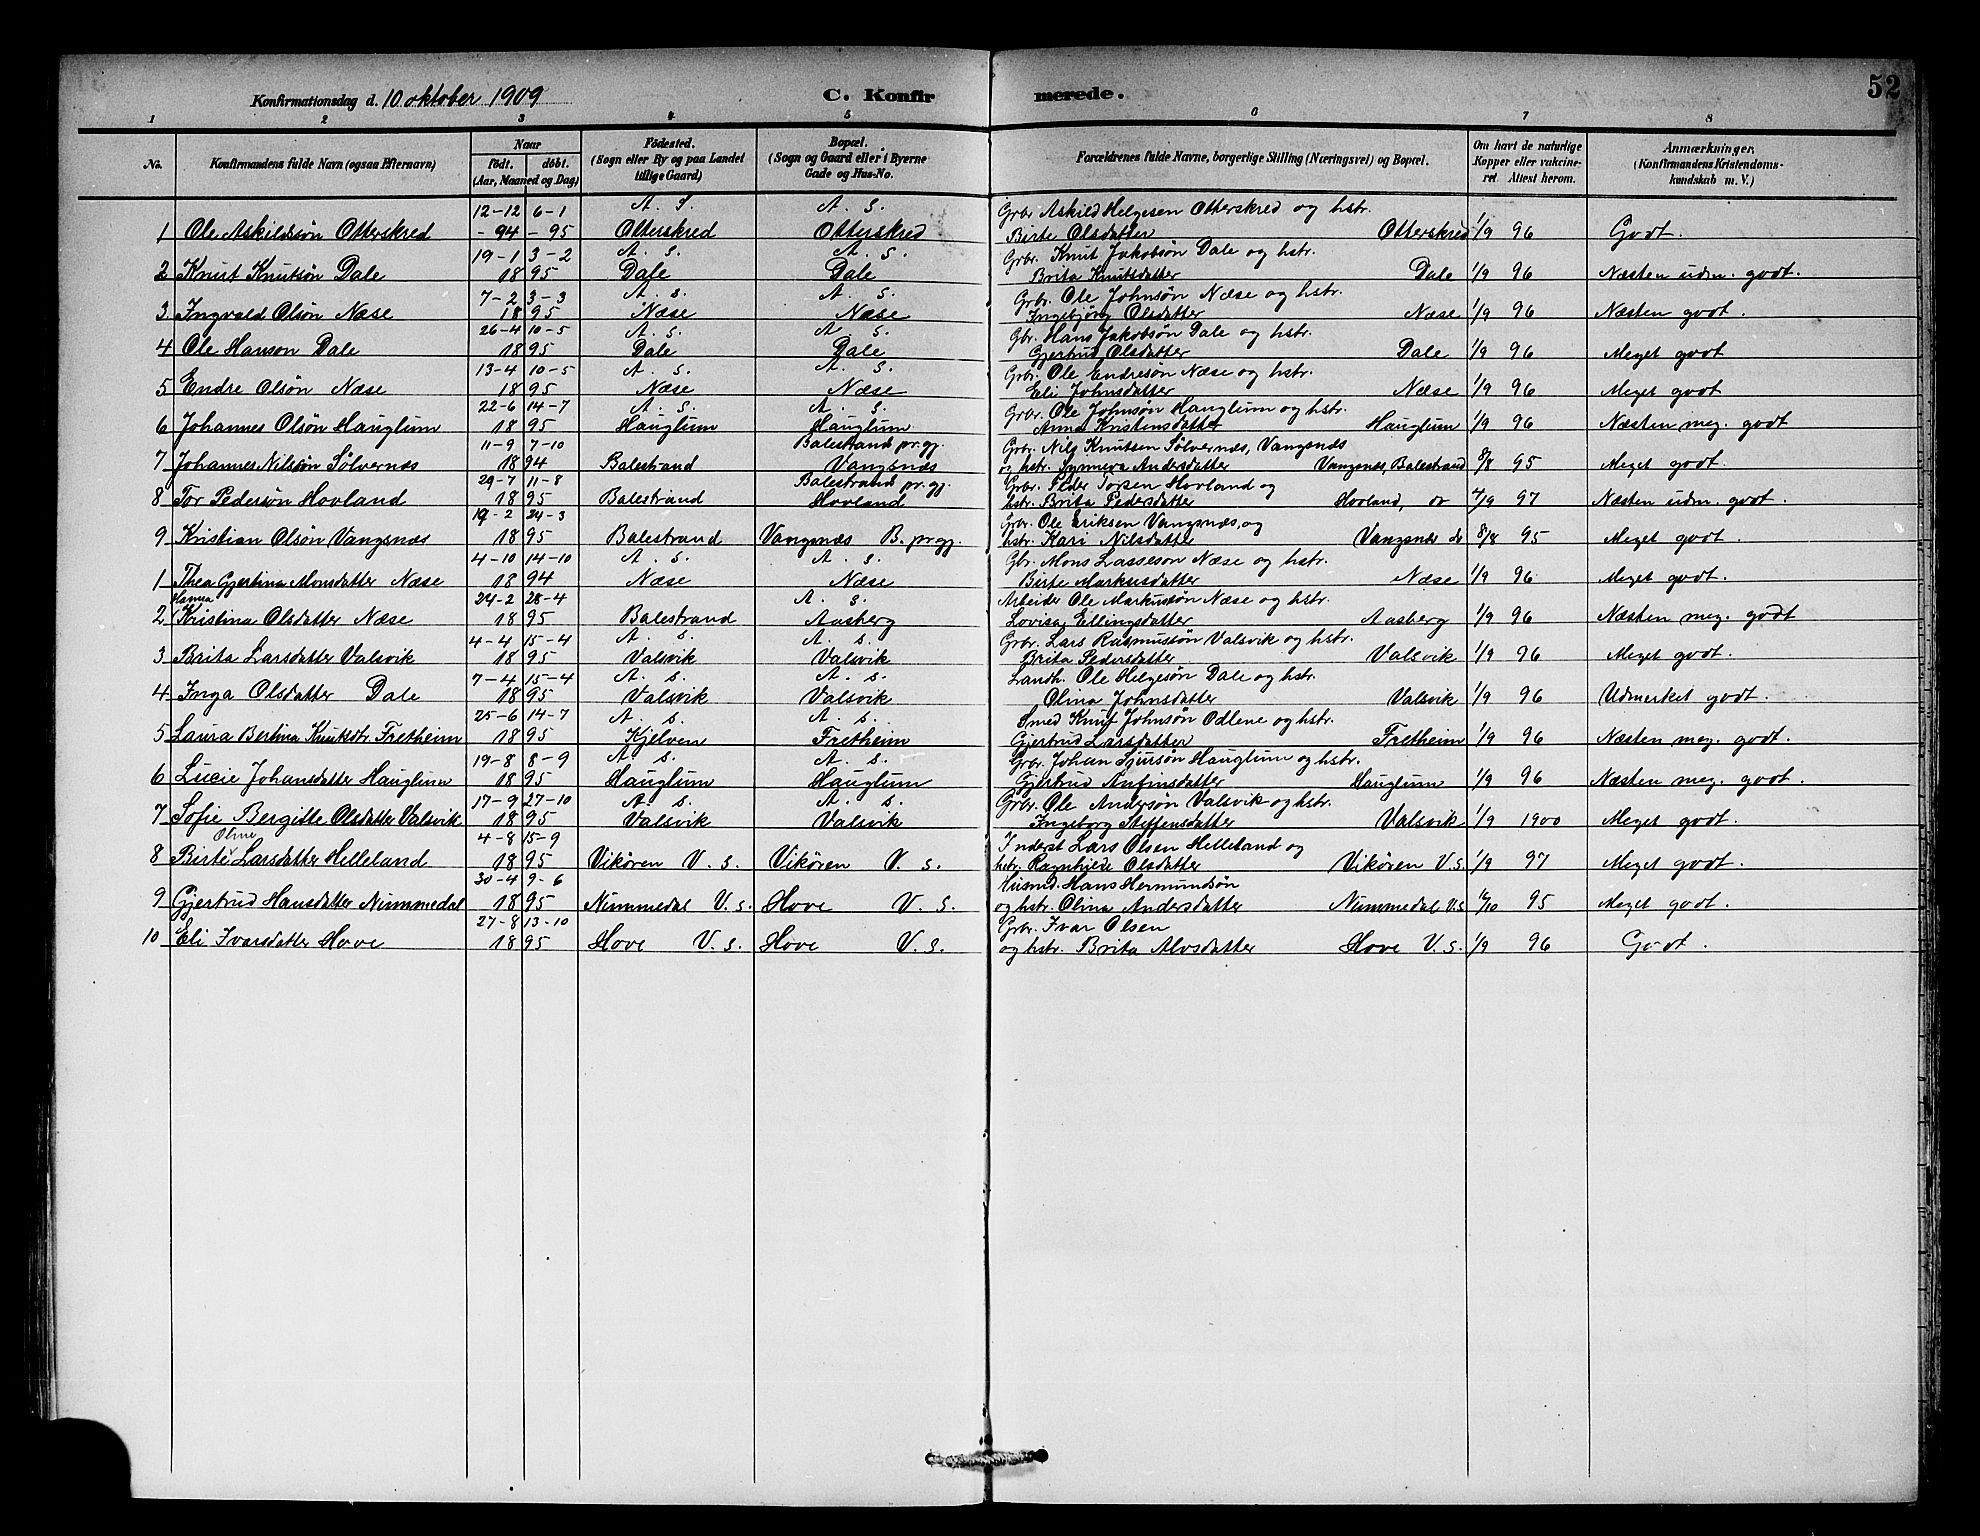 52
Konfirmationsdag d. 10 oktober 1909 C. Konfirmerede.
1 2 3 4 5 6 7 8
No. Konfirmandens fulde Navn (ogsaa Efternavn) Naar født. døbt. (Aar, Maaned og Dag) Fødested. (Sogn eller By og paa Landet tillige Gaard) Bopæl. (Sogn og Gaard eller i Byerne Gade og Hus-No. Forældrenes fulde Navne, borgerlige Stilling (Næringsvei) og Bopæl. Om havt de naturlige Kopper eller vakcineret Attest herom. Anmærkninger, (Konfirmandens Kristendomskundskab m. V.)
12-12 6-1 A. S. A. S. Grbr Askild Helgesen Otterskred og hstr.
1 Ole Askildssøn Otterskred - 94 - 95 Otterskred Otterskred Birte Olsdatter Otterskred 1/9 96 Godt.
19-1 3-2 A. S. A. S. Grbr. Knut Jakobsøn Dale og hstr.
2 Knut Knutsøn Dale 1895 Dale Dale Brita Knutsdatter Dale 1/9 96 Næsten udm. godt.
7-2 3-3 A. S. A. S. Grbr. Ole Johnsøn Næse og hstr.
3. Ingvald Olsøn Næse 1895 Næse Næse Ingebjørg Olsdatter Næse 1/9 96 Næsten godt.
26-4 10-5 A. S. A. S. Gbr. Hans Jakobsøn Dale og hstr.
4 Ole Hanson Dale 1895 Dale Dale Gjertrud Olsdatter Dale 1/9 96 Meget godt
13-4 10-5 A. S. A. S. Grbr. Ole Endresøn Næse og hstr.
5 Endre Olsøn Næse 1895 Næse Næse Eli Johnsdatter Næse 1/9 96 Meget godt
22-6 14-7 A. S. A. S. Grbr. Ole Johnsøn Hauglum og hstr.
6 Johannes Olsøn Hauglum 1895 Hauglum Hauglum Anna Kristensdatter Hauglum 1/9 96 Næsten meg. godt
11-9 7-10 Balestrand pr.gj. Grbr. Nils Knutsen Sølvernæs, Vangsnæs
7 Johannes Nilsøn Sølvernæs 1894 Balestrand Vangsnæs og hstr. Synneva Andersdatter Vangsnæs, Balestrand 8/8 95 Meget godt.
29-7 11-8 Balestrand pr.gj. Grbr. Peder Torsen Hovland og
8 Tor Pedersøn Hovland 1895 Balestrand Hovland hstr. Brita Pedersdatter Hovland, 4/9 97 Næsten udm. godt.
19-2 24-3 Grbr. Ole Eriksen Vangsnæs, og
9 Kristian Olsøn Vangsnæs 1895 Balestrand Vangsnæs B. pr.gj. hstr. Kari Nilsdatter Vangsnæs do 8/8 95 Meget godt.
4-10 14-10 A. S. A. S. Gbr. Mons Lasseson Næse og hstr.
1 Thea Gjertina Monsdatter Næse 1894 Næse Næse Birte Markusdatter Næse 1/9 96 Meget godt.
Hanna 24-2 28-4 A. S. Arbeider Ole Markussøn Næse og hstr.
2 Kristina Olsdatter Næse 1895 Balestrand Aasberg Lovisa Ellingsdatter Aasberg 1/9 96 Næsten meg. godt
4-4 15-4 A. S. A. S. Grbr. Lars Rasmussøn Valsvik og hstr.
3 Brita Larsdatter Valsvik 1895 Valsvik Valsvik Brita Pedersdatter Valsvik 1/9 96 Meget godt.
7-4 15-4 A. S. A. S. Landh. Ole Helgesøn Dale og hstr.
4 Inga Olsdatter Dale 1895 Valsvik Valsvik Olina Johnsdatter Valsvik 1/9 96 Udmerket godt.
25-6 14-7 A. S. A. S. Smed Knut Johnsøn Odlene og hstr.
5 Laura Bertina Knutsdtr. Fretheim 1895 Kjelven Fretheim Gjertrud Larsdatter Fretheim 1/9 96 Næsten meg. godt.
19-8 8-9 A. S. A. S. Grbr. Johan Sjursøn Hauglum og hstr.
6 Lucie Johansdatter Hauglum 1895 Hauglum Hauglum Gjertrud Anfinsdatter Hauglum 1/9 96 Næsten meg. godt.
17-9 27-10 A. S. A. S. Grbr. Ole Andersøn Valsvik og hstr.
7 Sofie Bergitte Olsdatter Valsvik 1895 Valsvik Valsvik Ingeborg Steffensdatter Valsvik 1/9 1900 Meget godt.
Oline 4-8 15-9 Inderst Lars Olsen Helleland og
8 Birte Larsdatter Helleland 1895 Vikøren V. S. Vikøren V. S. hstr. Ragnhilde Olsdatter Vikøren V. S. 1/9 97 Meget godt.
30-4 9-6 Husmd. Hans Hermundsøn
9 Gjertrud Hansdatter Nummedal 1895 Nummedal V. S. Hove V. S. og hstr. Olina Andersdatter Nummedal V.S. 95 Meget godt.
27-8 13-10 Grbr. Ivar Olsen
10 Eli Ivarsdatter Hove 1895 Hove V. S. Hove V. S. og hstr. Brita Alvsdatter Hove V. S. 1/9 96 Godt.